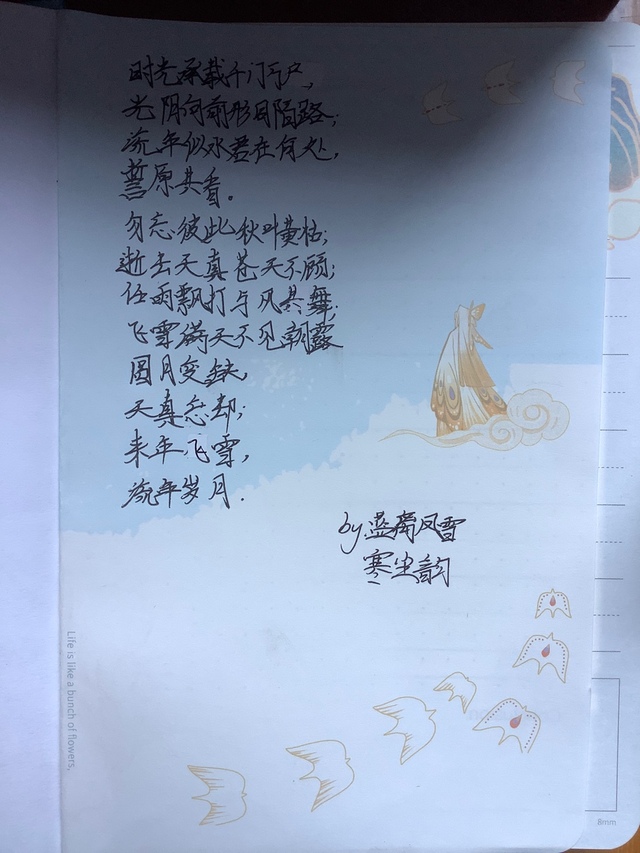 时光承载千门万户,
光阴向前形同陌路;
流年似水君在何处,
暂原共看。
勿忘彼此秋叶黄枯;
逝去天真苍天不顾;
任雨飘打与风共舞;
飞雪满天不见朝露
圆月变缺,
天真忘却;
来年飞雪,
流年岁月.
by.蓝离凤雪
寒尘韵
Life is like a bunch of flowers,
8mm